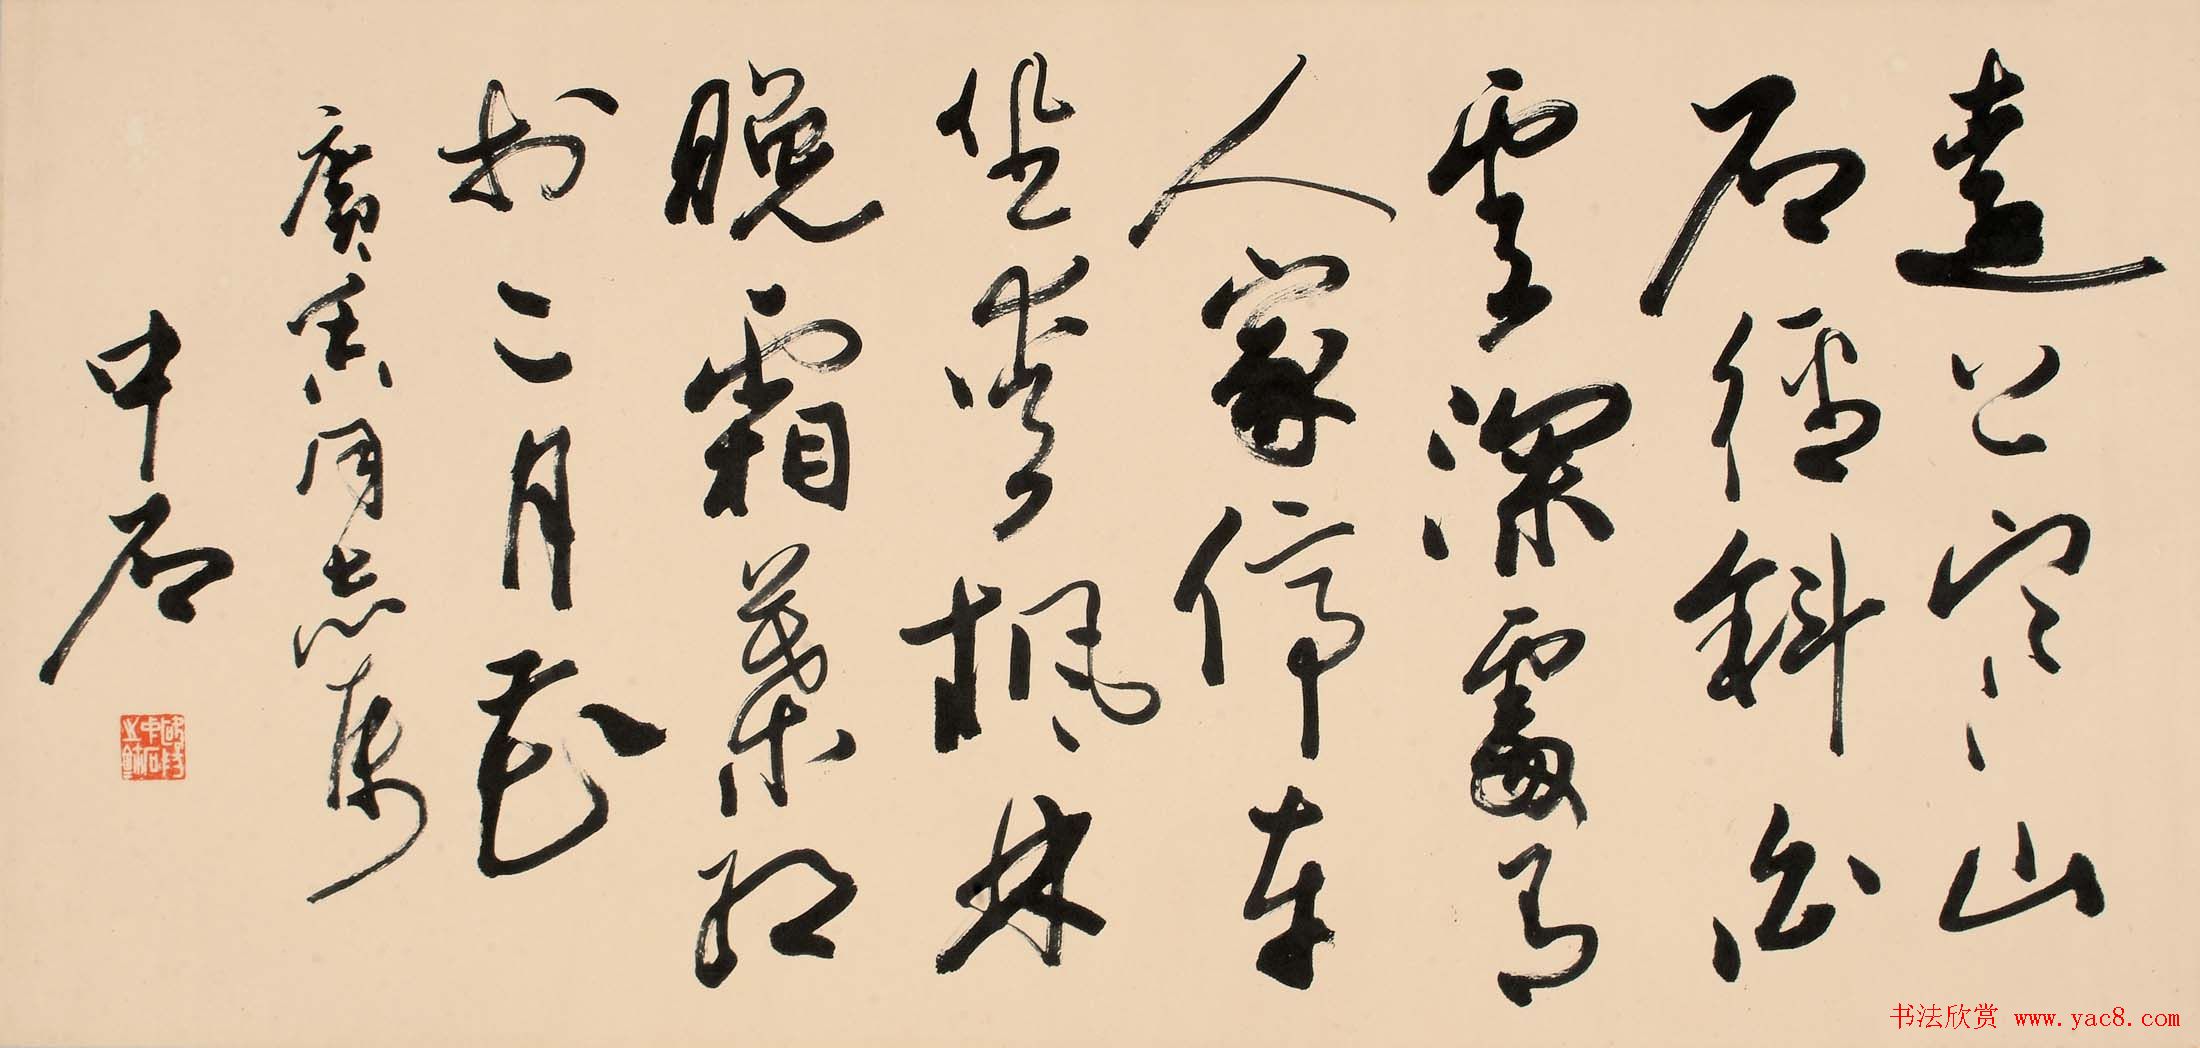 遠上寒山
石徑斜白
雲深處有
人家停車
坐愛楓林
晚霜葉紅
於二月花
廣同志属
中石
书法欣赏 www.yac8.com